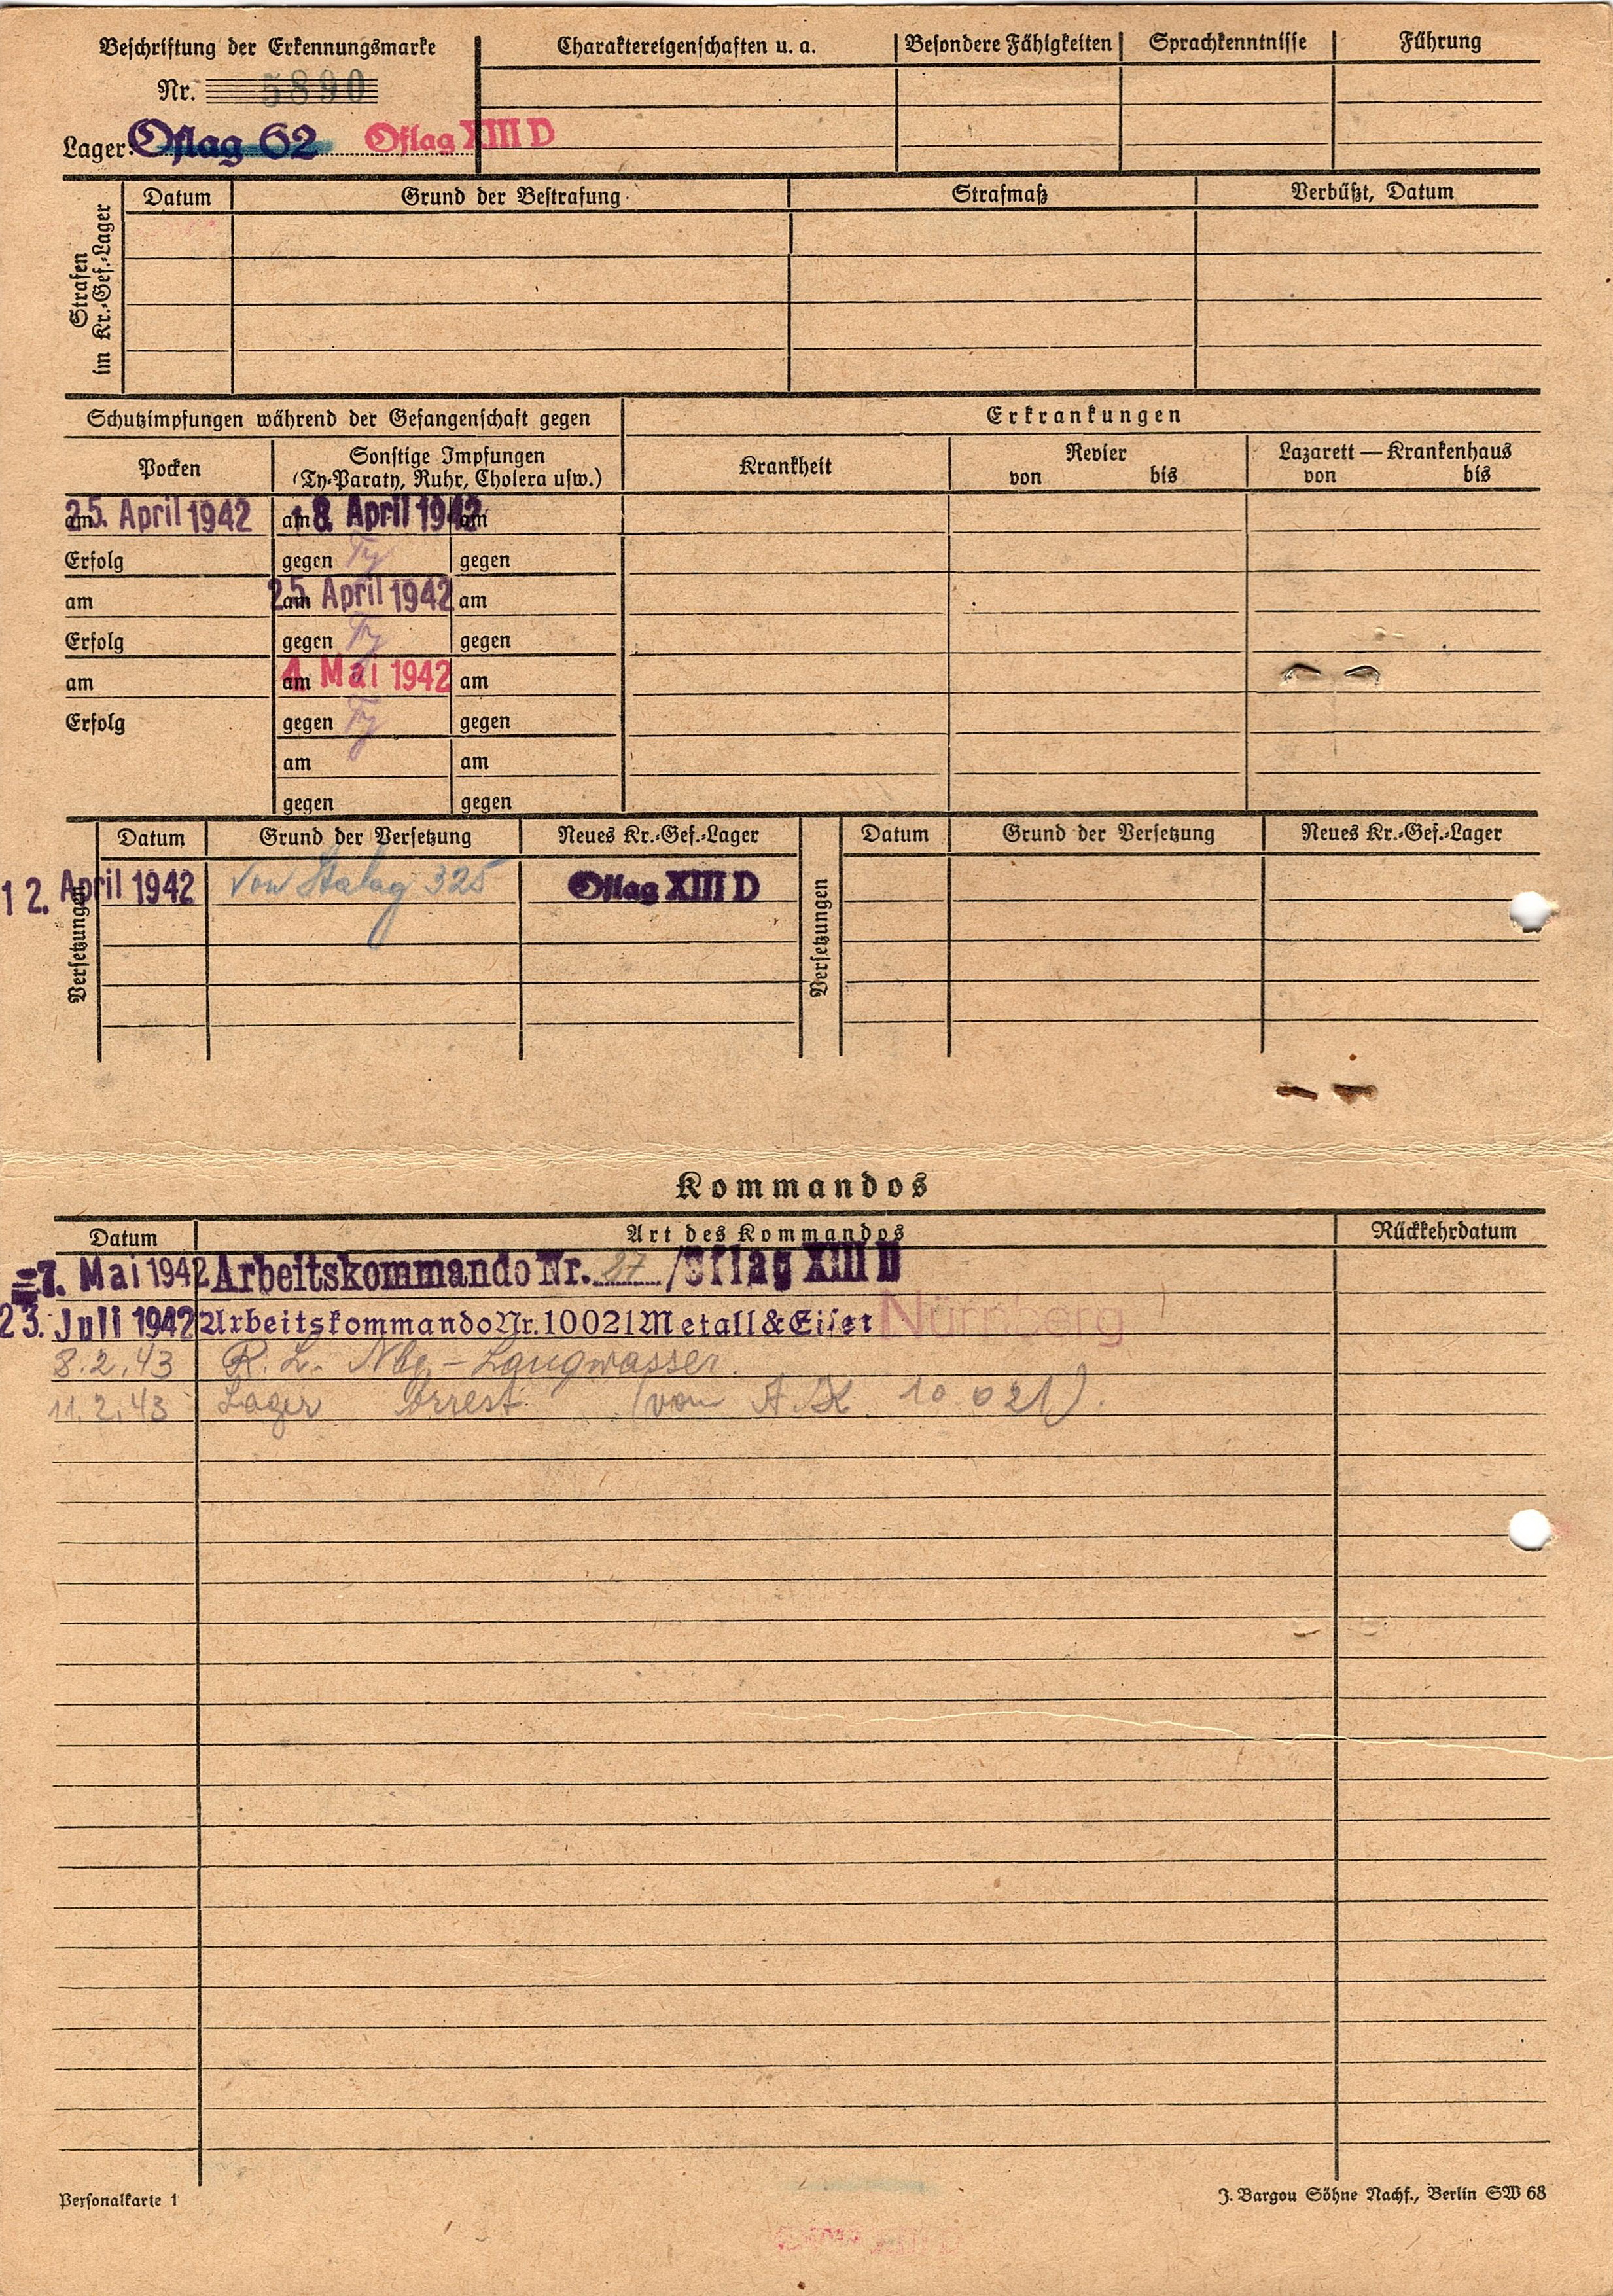 Beschriftung der Erkennungsmarke
Nr. 5890
Lager: Oflag 62 Oflag XIII D
Charaktereigenschaften u. a. Besondere Fähigkeiten Sprachkenntnisse Führung
Strafen im Kr.-Gef.-Lager
Datum Grund der Bestrafung Strafmaß Verbüßt, Datum
Schutzimpfungen während der Gefangenschaft gegen Erkrankungen
Pocken Sonstige Impfungen Krankheit Revier Lazarett — Krankenhaus
(Ty-Paraty, Ruhr, Cholera usw.) von bis von bis
am 25. April 1942 am 18. April 1942 am
Erfolg gegen Ty gegen
am am 25. April 1942 am
Erfolg gegen Ty gegen
am am 4. Mai 1942 am
Erfolg gegen Ty gegen
am am
gegen gegen
Versetzungen Datum Grund der Versetzung Neues Kr.-Gef.-Lager Versetzungen Datum Grund der Versetzung Neues Kr.-Gef.-Lager
12. April 1942 von Stalag 325 Oflag XIII D
Kommandos
Datum Art des Kommandos Rückkehrdatum
=7. Mai 1942 Arbeitskommando Nr. 27 / Oflag XIII D
23. Juli 1942 Arbeitskommando Nr. 10021 Metall & Eisen Nürnberg
8.2.43 R. L. Nbg - Langwasser.
11.2.43 Lager Arrest (von A.K. 10 021).
Personalkarte 1 J. Bargou Söhne Nachf., Berlin SW 68